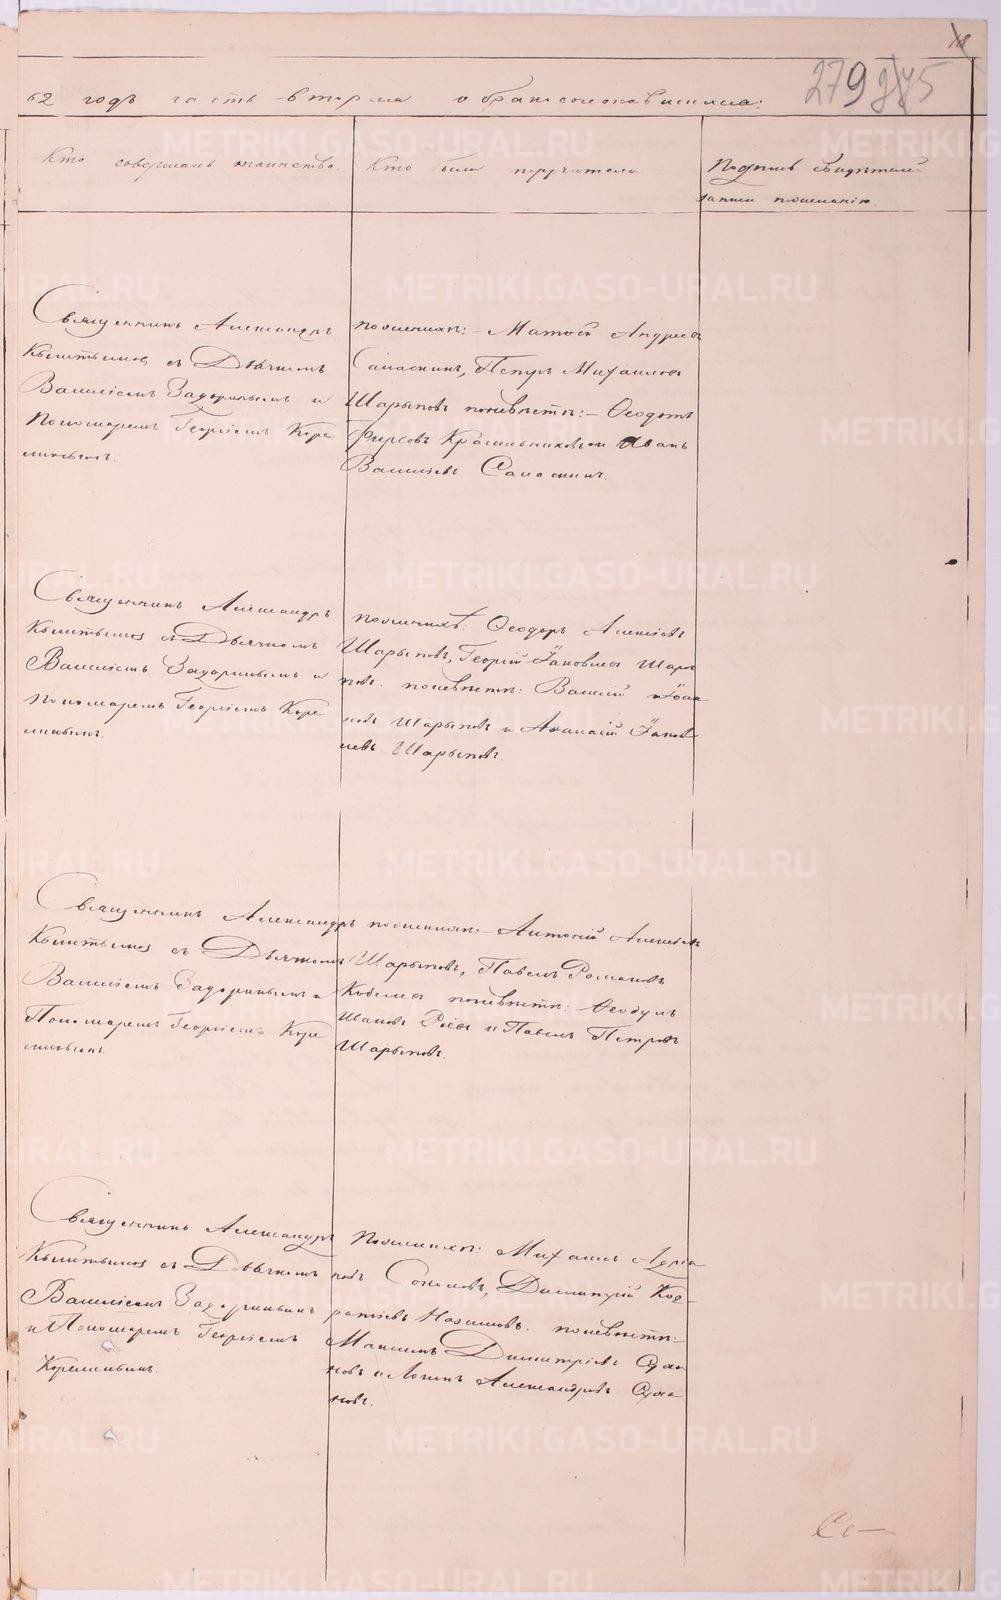 18
279
62 годъ часть вторая о бракосочетавшихся:
Кто совершалъ таинство.
Кто были поручители
Подпись свидѣтелей
записи по желанію.
Священникъ Александръ
Кыштымовъ съ Дьячкомъ
Василіемъ Задоринымъ и
Пономаремъ Георгіемъ Коре
линымъ.
по женихѣ:- Матѳій Андреевъ
Самаркинъ, Петръ Михаиловъ
Шарыповъ по невѣстѣ:- Ѳеодотъ
Фирсовъ Красильниковъ и Иванъ
Василіевъ
Священникъ Александръ
Кыштымовъ съ Дьячкомъ
Василіемъ Задоринымъ и
Пономаремъ Георгіемъ Коре
линымъ.
по женихѣ: Ѳеодоръ Алексіевъ
Шарыповъ, Георгій Іаковлевъ Шары
повъ. по невѣстѣ: Василій Іоан
новъ Шарыповъ и Аѳанасій Іаков
левъ Шарыповъ.
Священникъ Александръ
Кыштымовъ съ Дьячкомъ
Василіемъ Задоринымъ и
Пономаремъ Георгіемъ Коре
линымъ.
по женихѣ:- Антоній Алексіевъ
Шарыповъ, Павелъ Романовъ
Кобелевъ по невѣстѣ: Ѳеодулъ
Ивановъ и Павелъ Петровъ
Шарыповъ.
Священникъ Александръ
Кыштымовъ съ Дьячкомъ
Василіемъ Задоринымъ
и Пономаремъ Георгіемъ
Корелинымъ.
по женихѣ: Михаилъ Адріа
новъ Соколовъ, Димитрій Код-
ратіевъ Назимовъ. по невѣстѣ:-
Максимъ Димитріевъ
новъ и Логинъ Александровъ
новъ.
METRIKI.GASO-URAL.RU